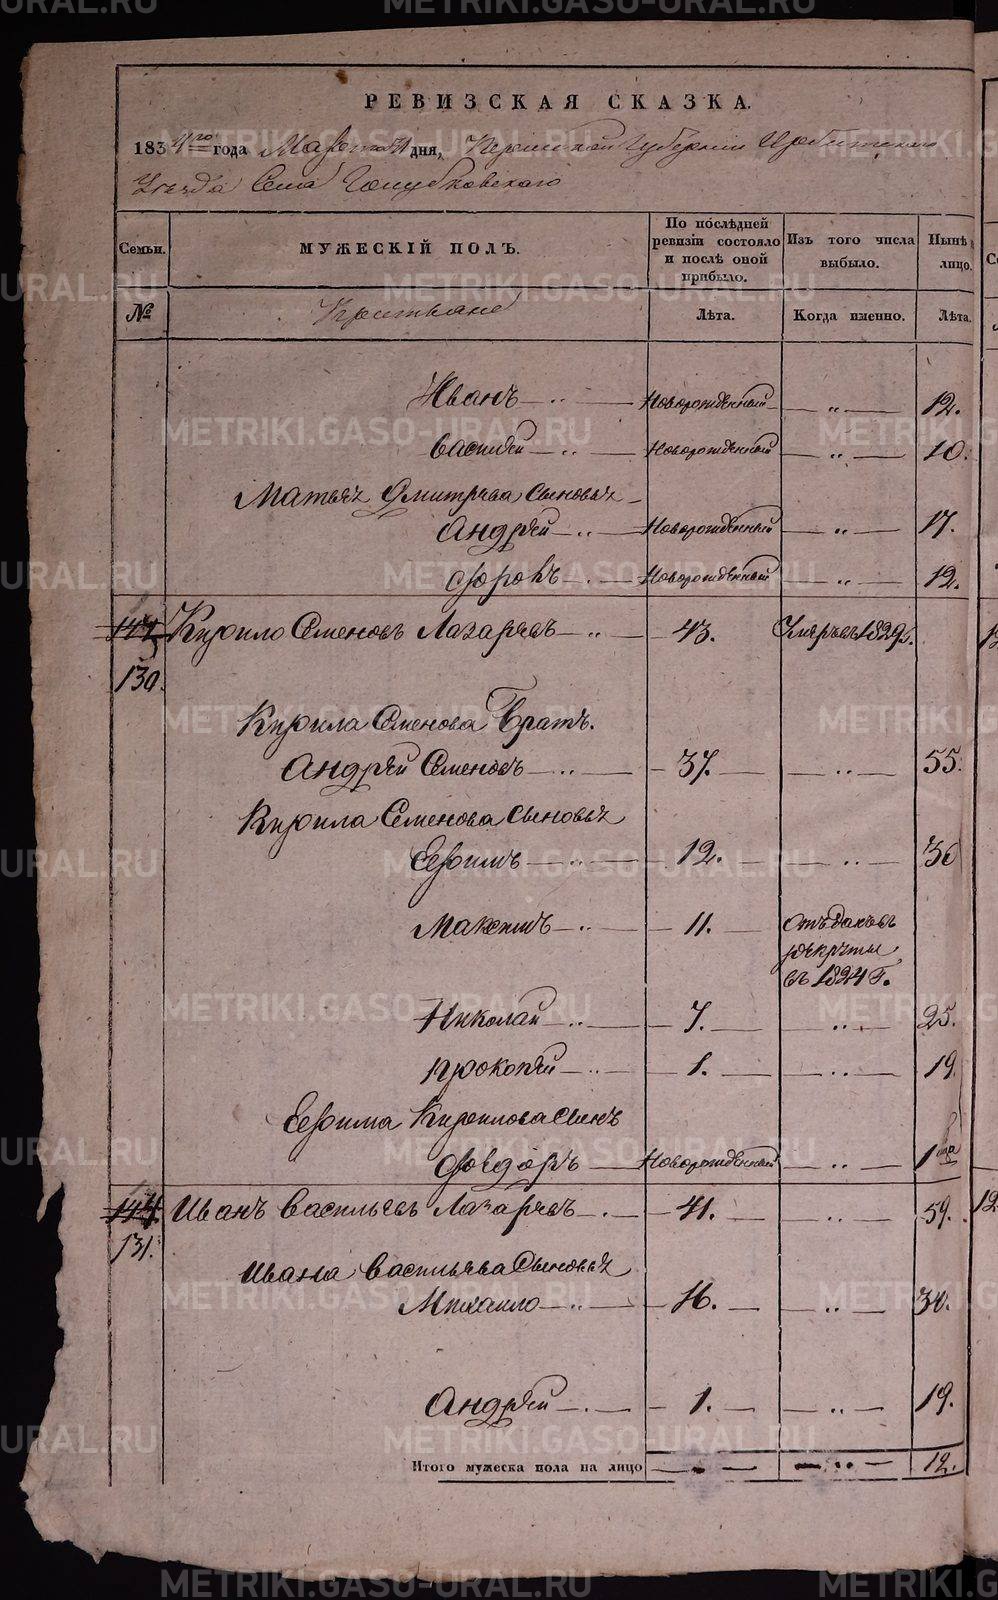 РЕВИЗСКАЯ СКАЗКА.
1834го года Марта дня, Пермской Губернии Ирбитскаго
Уезда Села Голубковскаго
Семьи. МУЖЕСКІЙ ПОЛЪ. По послѣдней ревизіи состояло и послѣ оной прибыло. Изъ того числа выбыло. Нынѣ лицо.
№ Крестьяне Лѣта. Когда именно. Лѣта.
Иванъ — „ — Новорожденный — „ — 12.
Василей — „ — Новорожденный — „ — 10.
Матвея Дмитрева сыновья
Андрей — „ — Новорожденный — „ — 17.
Фоpолъ — „ — Новорожденный — „ — 12.
130. Кирило Семеновъ Лазаревъ — „ — 43. Умеръ въ 1829 г.
Кирила Семенова Братъ.
Андрей Семеновъ — „ — 37. — „ — 55.
Кирила Семенова сыновья
Ефимъ — „ — 12. — „ — 30
Максимъ — „ — 11. Отъданъ въ
рекруты
въ 1824 г.
Николай — „ — 7. — „ — 25.
Прокопей — „ — 1. — „ — 19.
Ефима Кирилова сынъ
Федоръ — Новорожденный — „ — 1
144. Иванъ Васильевъ Лазаревъ — „ — 41. — „ — 59.
131.
Ивана Васильева Сыновья
Михаило — „ — 16. — „ — 34.
Андрей — „ — 1. — „ — 19.
Итого мужеска пола на лицо — „ — — „ — 12.
METRIKI.GASO-URAL.RU